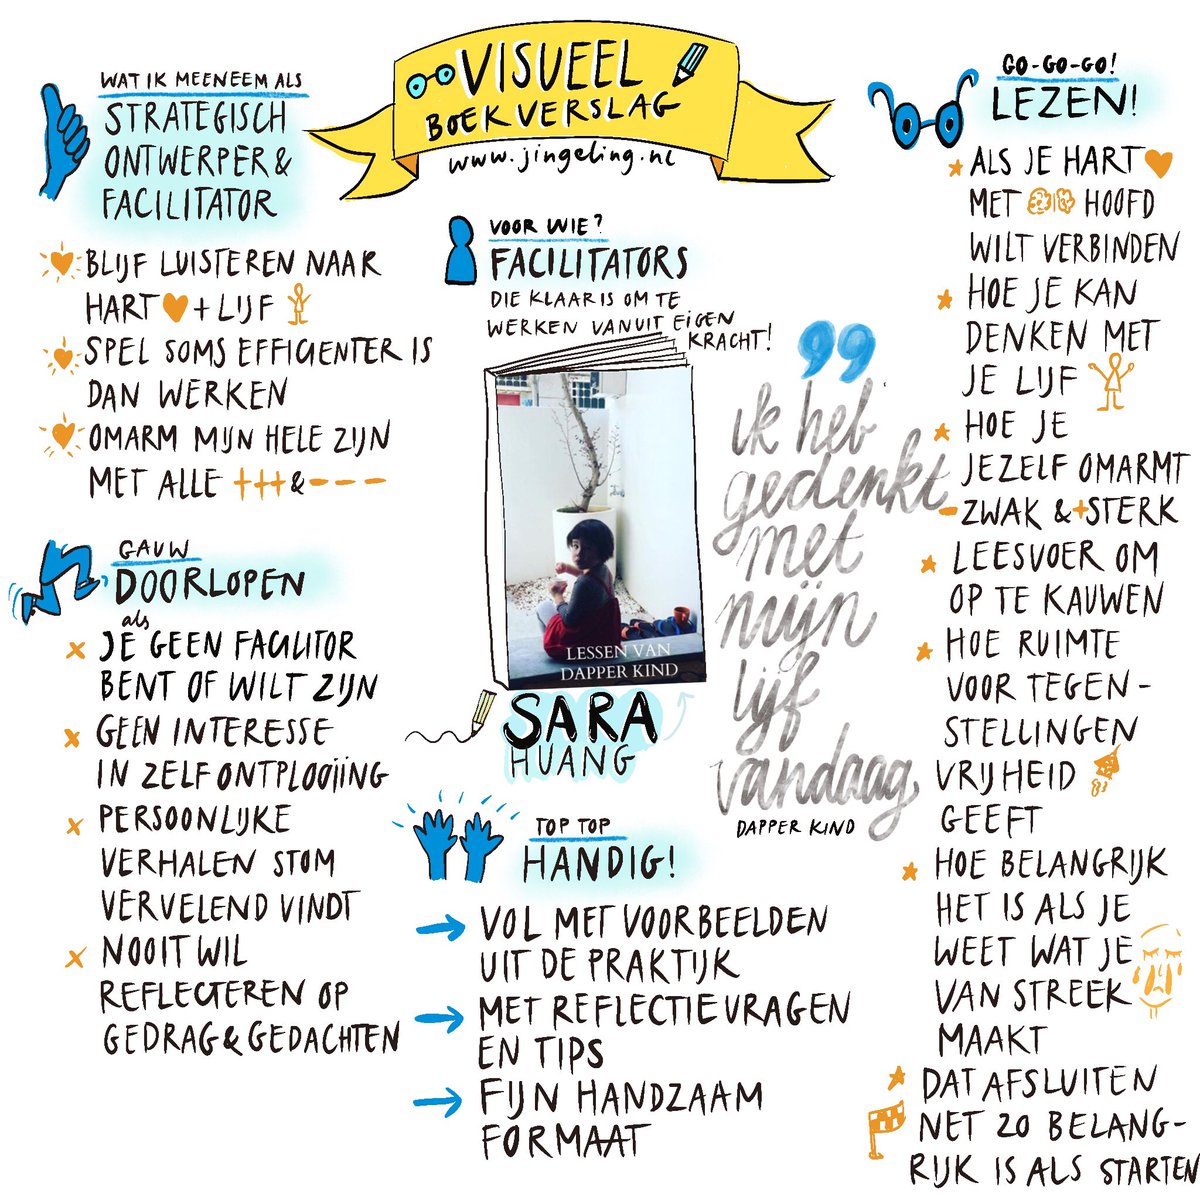 VISUEEL
BOEKVERSLAG
www.jingeling.nl
WAT IK MEENEEM ALS
STRATEGISCH
ONTWERPER &
FACILITATOR
BLIJF LUISTEREN NAAR
HART + LIJF
SPEL SOMS EFFICIENTER IS
DAN WERKEN
OMARM MIJN HELE ZIJN
MET ALLE +++ & ---
GAUW
DOORLOPEN
als
JE GEEN FACILITOR
BENT OF WILT ZIJN
GEEN INTERESSE
IN ZELFONTPLOOIING
PERSOONLIJKE
VERHALEN STOM
VERVELEND VINDT
NOOIT WIL
REFLECTEREN OP
GEDRAG & GEDACHTEN
VOOR WIE?
FACILITATORS
DIE KLAAR IS OM TE
WERKEN VANUIT EIGEN
KRACHT!
LESSEN VAN
DAPPER KIND
SARA
HUANG
ik heb
gedenkt
met
mijn
lijf
vandaag
DAPPER KIND
TOP TOP
HANDIG!
VOL MET VOORBEELDEN
UIT DE PRAKTIJK
MET REFLECTIEVRAGEN
EN TIPS
FIJN HANDZAAM
FORMAAT
GO-GO-GO!
LEZEN!
ALS JE HART
MET HOOFD
WILT VERBINDEN
HOE JE KAN
DENKEN MET
JE LIJF
HOE JE
JEZELF OMARMT
-ZWAK & +STERK
LEESVOER OM
OP TE KAUWEN
HOE RUIMTE
VOOR TEGEN-
STELLINGEN
VRIJHEID
GEEFT
HOE BELANGRIJK
HET IS ALS JE
WEET WAT JE
VAN STREEK
MAAKT
DAT AFSLUITEN
NET ZO BELANG-
RIJK IS ALS STARTEN